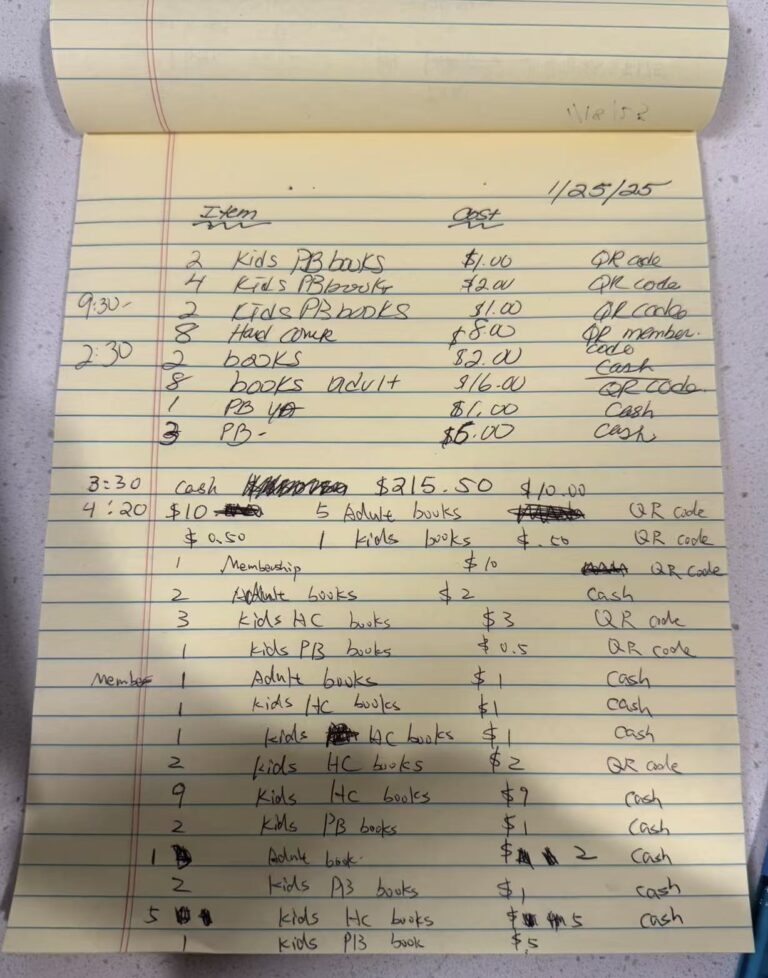 1/25/25
Item Cost
2 Kids PB books $1.00 QR code
4 Kids PB books $2.00 QR code
9:30- 2 Kids PB books $1.00 QR code
8 Hard cover $8.00 QR member. code
2:30 2 books $2.00 Cash
8 books adult $16.00 QR code.
1 PB YA $1.00 Cash
3 PB - $6.00 Cash
3:30 cash $215.50 $10.00
4:20 $10 5 Adult books QR code
$0.50 1 kids books $.50 QR code
1 Membership $10 QR code
2 Adult books $2 cash
3 kids HC books $3 QR code
1 kids PB books $0.5 QR code
Member 1 Adult books $1 cash
1 kids HC books $1 cash
1 kids HC books $1 cash
2 kids HC books $2 QR code
9 kids HC books $9 cash
2 kids PB books $1 cash
1 Adult book. $ 2 cash
2 kids PB books $1 cash
5 kids HC books $ 5 cash
1 kids PB book $.5